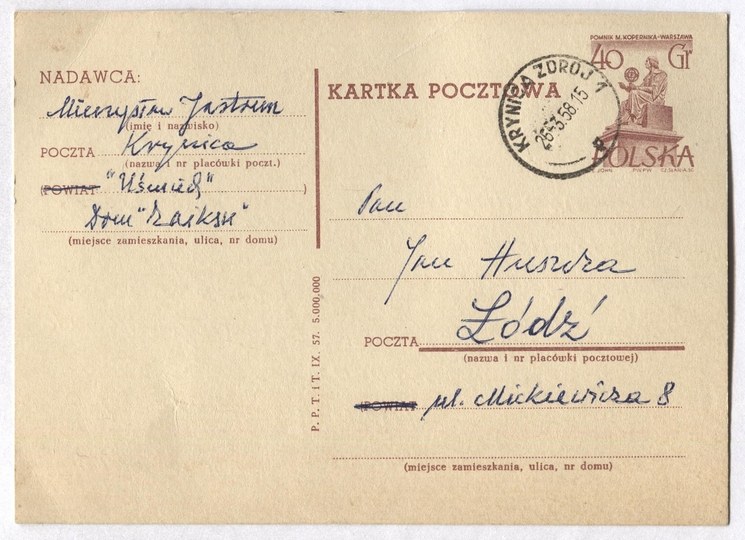 NADAWCA:
Mieczysław Jastrun
(imię i nazwisko)
POCZTA Krynica
(nazwa i nr placówki poczt.)
(POWIAT "Uśmiech" )
Dom "Zaiksu"
(miejsce zamieszkania, ulica, nr domu)
KARTKA POCZTOWA
POMNIK M. KOPERNIKA-WARSZAWA
40 Gr
POLSKA
KRYNICA ZDRÓJ 1
26.-3.58.15
P. P. T. i T. IX. 57. 5.000,000
Pan
Jan Huszcza
Łódź
POCZTA
(nazwa i nr placówki pocztowej)
POWIAT ul. Mickiewicza 8
(miejsce zamieszkania, ulica, nr domu)